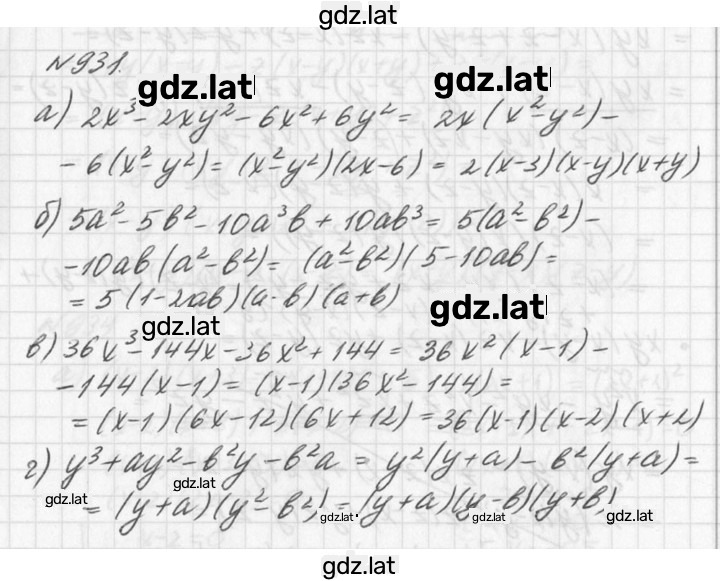 gdz.lat
№931.
gdz.lat
gdz.lat
а) 2x³ - 2xy² - 6x² + 6y² = 2x(x² - y²) -
- 6(x² - y²) = (x² - y²)(2x - 6) = 2(x - 3)(x - y)(x + y)
б) 5a² - 5b² - 10a³b + 10ab³ = 5(a² - b²) -
- 10ab(a² - b²) = (a² - b²)(5 - 10ab) =
= 5(1 - 2ab)(a - b)(a + b)
gdz.lat
gdz.lat
в) 36x³ - 144x - 36x² + 144 = 36x²(x - 1) -
- 144(x - 1) = (x - 1)(36x² - 144) =
= (x - 1)(6x - 12)(6x + 12) = 36(x - 1)(x - 2)(x + 2)
г) y³ + ay² - b²y - b²a = y²(y + a) - b²(y + a) =
gdz.lat
gdz.lat
= (y + a)(y² - b²) = (y + a)(y - b)(y + b)
gdz.lat
gdz.lat
gdz.lat
gdz.lat